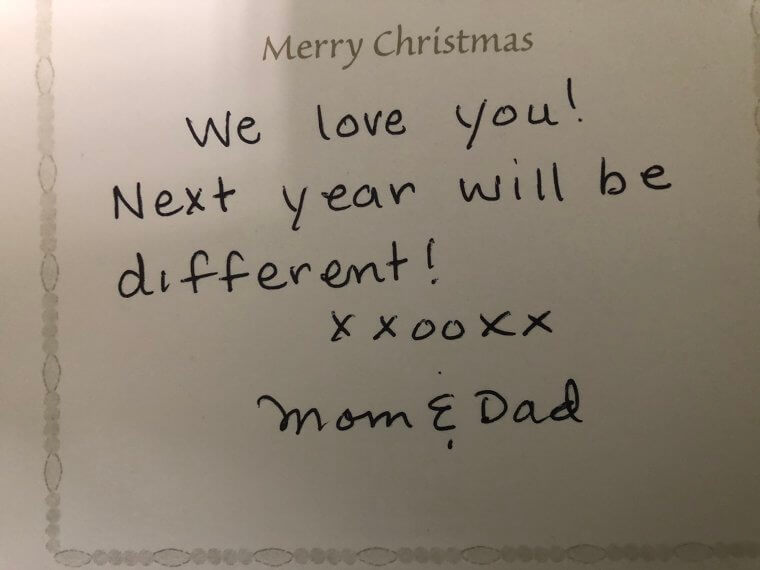 Merry Christmas
We love you!
Next year will be
different!
x x o o x x
Mom & Dad